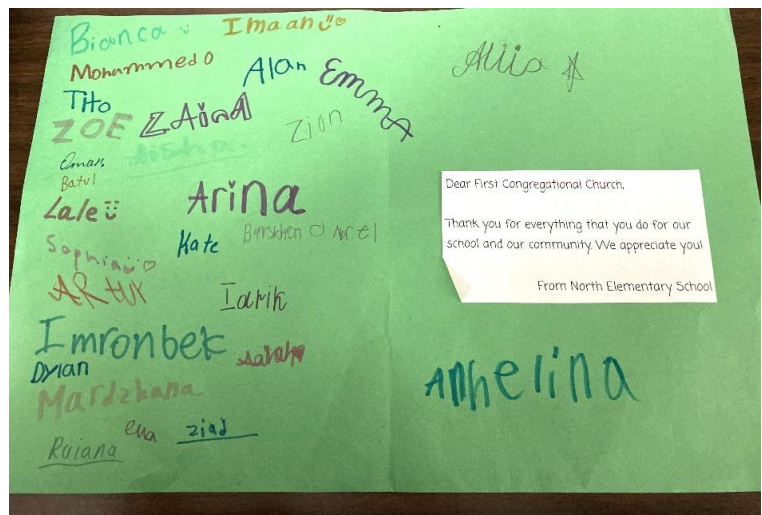 Bianca
Imaan
Mohammed O
Alan
Emma
Tito
ZOE
ZAind
Zion
Aisha.
Eman.
Batul
Lale
Arina
Kate
Sophia
ARtur
Tarik
Imronbek
Dylan
Sarah
Mardzhana
ena
ziad
Raiana
Allia
Dear First Congregational Church,
Thank you for everything that you do for our
school and our community. We appreciate you!
From North Elementary School
Anhelina